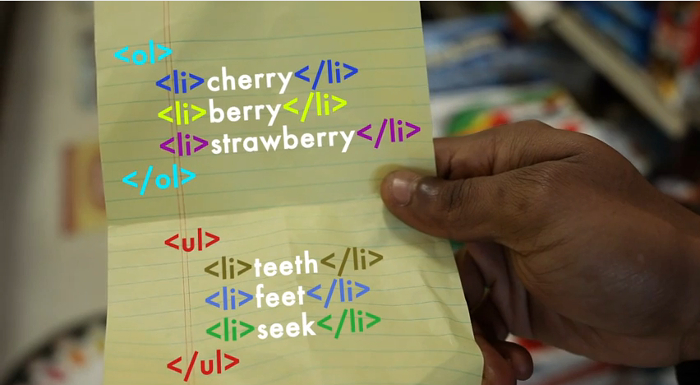 <ol>
<li>cherry</li>
<li>berry</li>
<li>strawberry</li>
</ol>
<ul>
<li>teeth</li>
<li>feet</li>
<li>seek</li>
</ul>